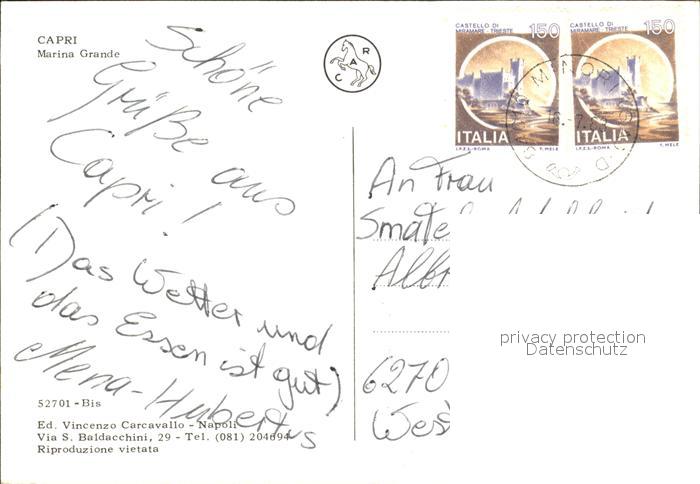 CAPRI
Marina Grande
C A R
Schöne
Grüße aus
Capri!
(Das Wetter und
das Essen ist gut)
Mena-Hubertus
52701-Bis
Ed. Vincenzo Carcavallo - Napoli
Via S. Baldacchini, 29 - Tel. (081) 204694
Riproduzione vietata
CASTELLO DI
MIRAMARE - TRIESTE
150
ITALIA
I.P.Z.S.-ROMA T. MELE
CASTELLO DI
MIRAMARE - TRIESTE
150
ITALIA
I.P.Z.S.-ROMA T. MELE
MINORI
An Frau
6270
privacy protection
Datenschutz